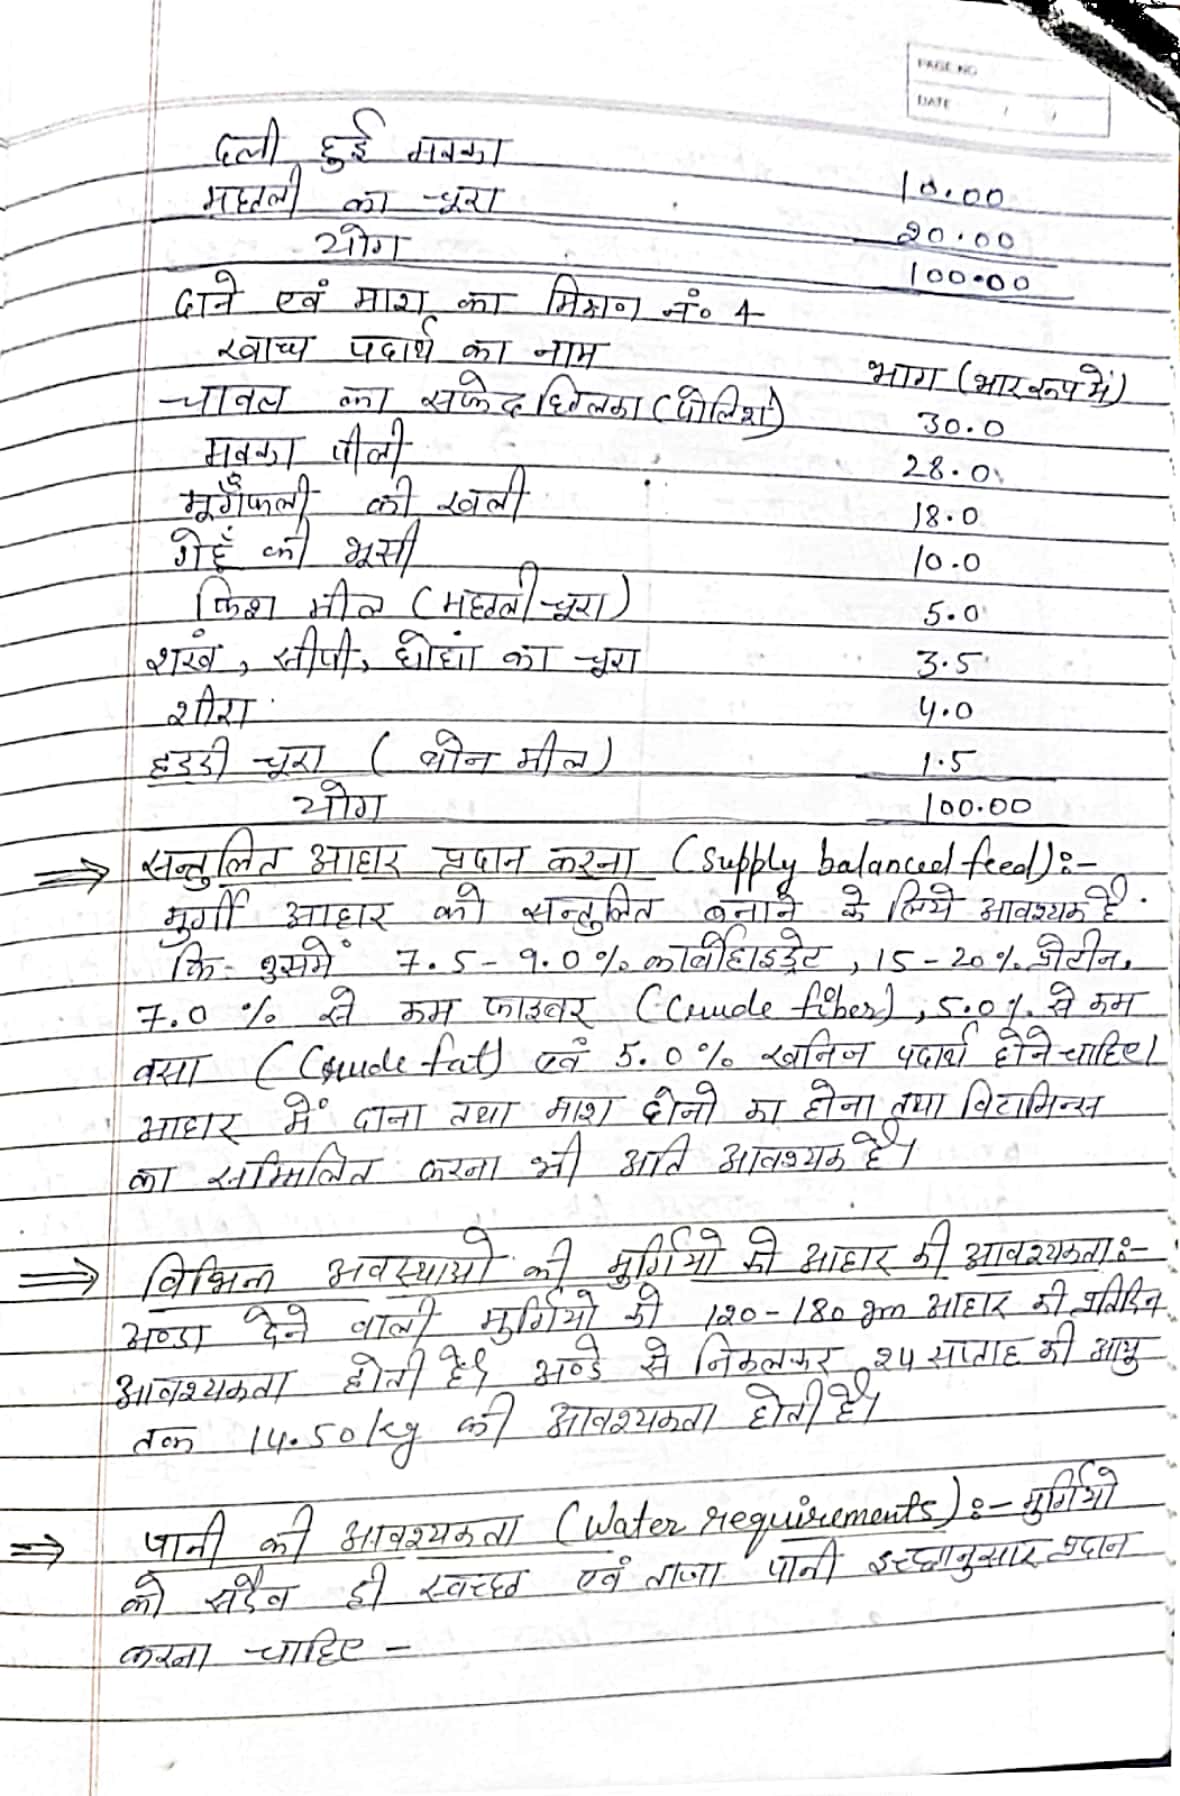 PAGE NO
DATE / /
दली हुई मक्का 10.00
मछली का चूरा 20.00
योग 100.00
दाने एवं माश का मिश्रण नं० 4
खाद्य पदार्थ का नाम भाग (भार रूप में)
चावल का सफेद छिलका (पोलिश) 30.0
मक्का पीली 28.0
मूगँफली की खली 18.0
गेहूँ की भूसी 10.0
फिश मील (मछली चूरा) 5.0
शखं, सीपी, घोघां का चूरा 3.5
शीरा 4.0
हडडी चूरा (बोन मील) 1.5
योग 100.00
⇒ सन्तुलित आहार प्रदान करना (Supply balanced feed):-
मुर्गी आहार को सन्तुलित बनाने के लिये आवश्यक है
कि इसमें 7.5-9.0% कार्बोहाइड्रेट, 15-20% प्रोटीन,
7.0% से कम फाइबर (Crude fiber), 5.0% से कम
वसा (Crude fat) एवं 5.0% खनिज पदार्थ होने चाहिए।
आहार में दाना तथा माश दोनो का होना तथा विटामिन्स
का सम्मिलित करना भी अति आवश्यक है।
⇒ विभिन्न अवस्थाओ की मुर्गियो को आहार की आवश्यकता:-
अण्डा देने वाली मुर्गियो को 120-180 gm आहार की प्रतिदिन
आवश्यकता होती है। अण्डे से निकलकर 24 सप्ताह की आयु
तक 14.50 kg की आवश्यकता होती है।
⇒ पानी की आवश्यकता (Water requirements):- मुर्गियो
को सदैव ही स्वच्छ एवं ताजा पानी इच्छानुसार प्रदान
करना चाहिए -